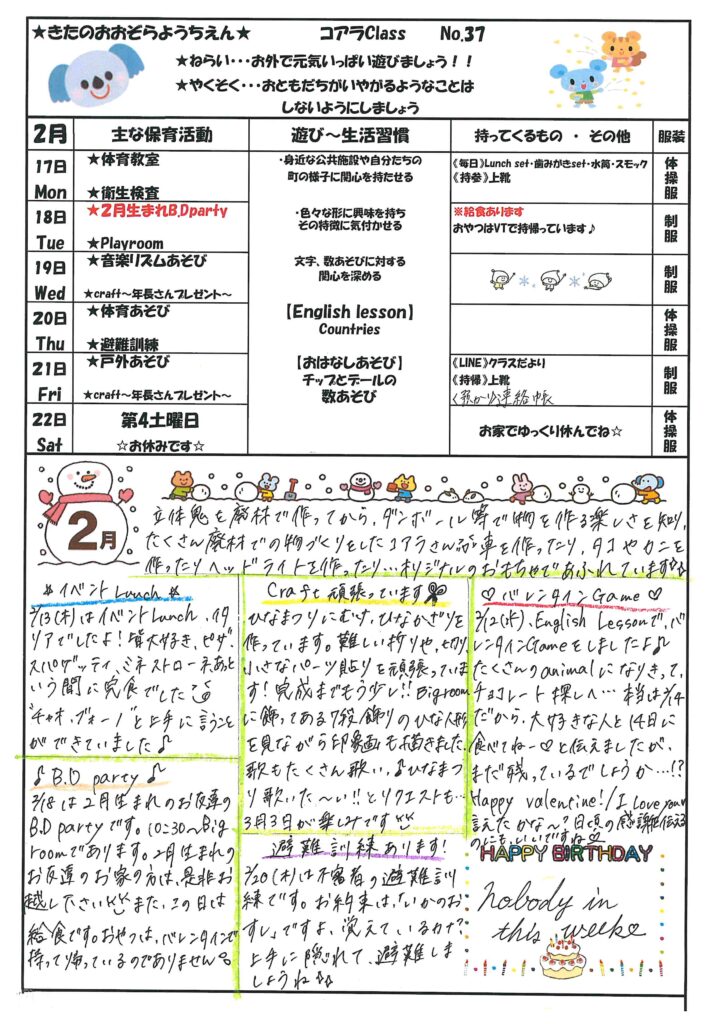 ★きたのおおぞらようちえん★ コアラClass No.37
★ねらい・・・お外で元気いっぱい遊びましょう！！
★やくそく・・・おともだちがいやがるようなことは
しないようにしましょう
2月 主な保育活動 遊び～生活習慣 持ってくるもの ・ その他 服装
17日 Mon ★体育教室
★衛生検査
・身近な公共施設や自分たちの
町の様子に関心を持たせる
《毎日》Lunch set・歯みがきset・水筒・スモック
《持参》上靴
体操服
18日 Tue ★2月生まれB.Dparty
★Playroom
・色々な形に興味を持ち
その特徴に気付かせる
※給食あります
おやつはVTで持帰っています♪
制服
19日 Wed ★音楽リズムあそび
★craft～年長さんプレゼント～
文字、数あそびに対する
関心を深める
制服
20日 Thu ★体育あそび
★避難訓練
【English lesson】
Countries
体操服
21日 Fri ★戸外あそび
★craft～年長さんプレゼント～
【おはなしあそび】
チップとデールの
数あそび
《LINE》クラスだより
《持帰》上靴
連絡帳
制服
22日 Sat 第4土曜日
☆お休みです☆
お家でゆっくり休んでね☆
体操服
2月
立体鬼を廃材で作ってから、ダンボール等で物を作る楽しさを知り、
たくさん廃材での物づくりをしたコアラさん 車を作ったり、タコやカニを
作ったりヘッドライトを作ったり…オリジナルのおもちゃであふれています♪
＊イベントLunch＊
2/13(木)はイベントLunch、イタ
リアでしたよ！皆大好き、ピザ、
スパゲッティ、ミネストローネあっと
いう間に完食でした
"チャオ、ボォーノ"と上手に言うこと
ができていました♪
♪B.D party♪
2/18は2月生まれのお友達の
B.D partyです。10:30～Big
roomであります。2月生まれの
お友達のお家の方は、是非お
越し下さい また、この日は
給食です。おやつは、バレンタインで
持って帰っているのでありません
Craft頑張っています
ひなまつりにむけ、ひなかざりを
作っています。難しい折りや、切り
小さなパーツ貼りを頑張っていま
す！完成までもう少し!!Big room
に飾ってある7段飾りのひな人形
を見ながら印象画も描きました
歌もたくさん歌い、♪ひなまつ
り歌いた～い!!とリクエストも…
3月3日が楽しみです
避難訓練あります！
2/20(木)は不審者の避難訓
練です。お約束は、「いかのお
すし」ですよ、覚えているかな？
上手に隠れて、避難しま
しょうね♪
♡バレンタインGame♡
2/12(水)、English Lessonで、バ
レンタインGameをしましたよ♪
たくさんのanimalになりきって、
チョコレート探しへ…本当は2/14
だから、大好きな人と14日に
食べてねー♡と伝えましたが、
まだ残っているでしょうか…!?
Happy valentine!/I love you
言えたかな？日頃の感謝を伝える
のにもいいですね♡
HAPPY BIRTHDAY
nobody in
this week